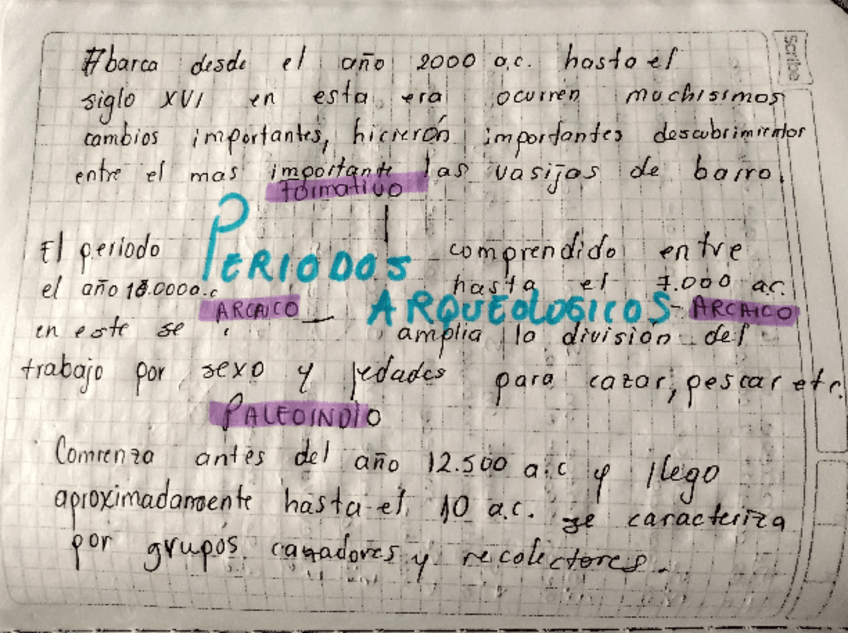 Abarca desde el año 2000 a.c. hasta el
siglo XVI en esta era ocurren muchisimos
cambios importantes, hicierón importantes descubrimientos
entre el mas importante las vasijas de barro.
formativo
PERIODOS
ARQUEOLOGICOS
El periodo comprendido entre
el año a.c hasta el 7.000 a.c.
ARCAICO ARCAICO
en este se amplia la división del
trabajo por sexo y edades para cazar, pescar etr.
PALEOINDIO
Comienza antes del año 12.500 a.c y llego
aproximadamente hasta el 10 a.c. se caracteriza
por grupos cazadores y recolectores.
Scribe